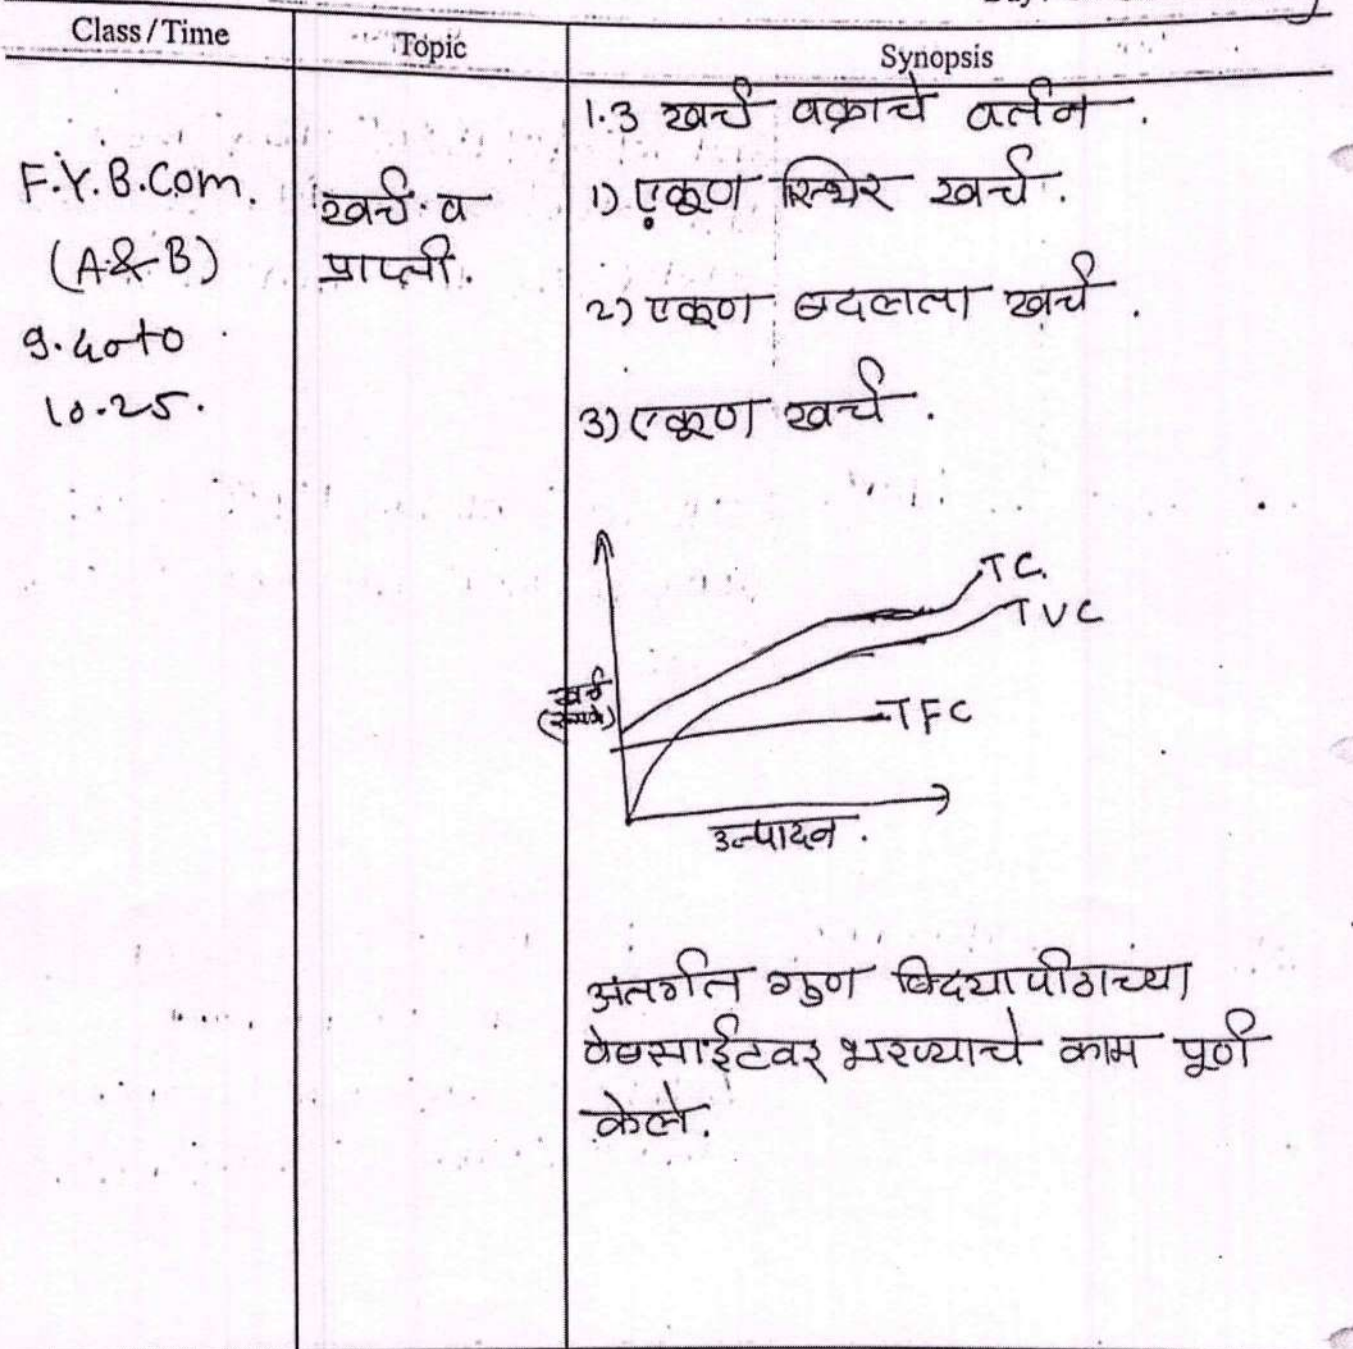 Class / Time
Topic
Synopsis
F.Y.B.Com.
(A & B)
9.40 to
10.25.
खर्च व
प्राप्ती.
1.3 खर्च वक्राचे वर्तन.
1) एकूण स्थिर खर्च.
2) एकूण बदलता खर्च.
3) एकूण खर्च.
TC.
TVC
खर्च
TFC
उत्पादन.
अंतर्गत गुण विद्यापीठाच्या
वेबसाईटवर भरण्याचे काम पूर्ण
केले.